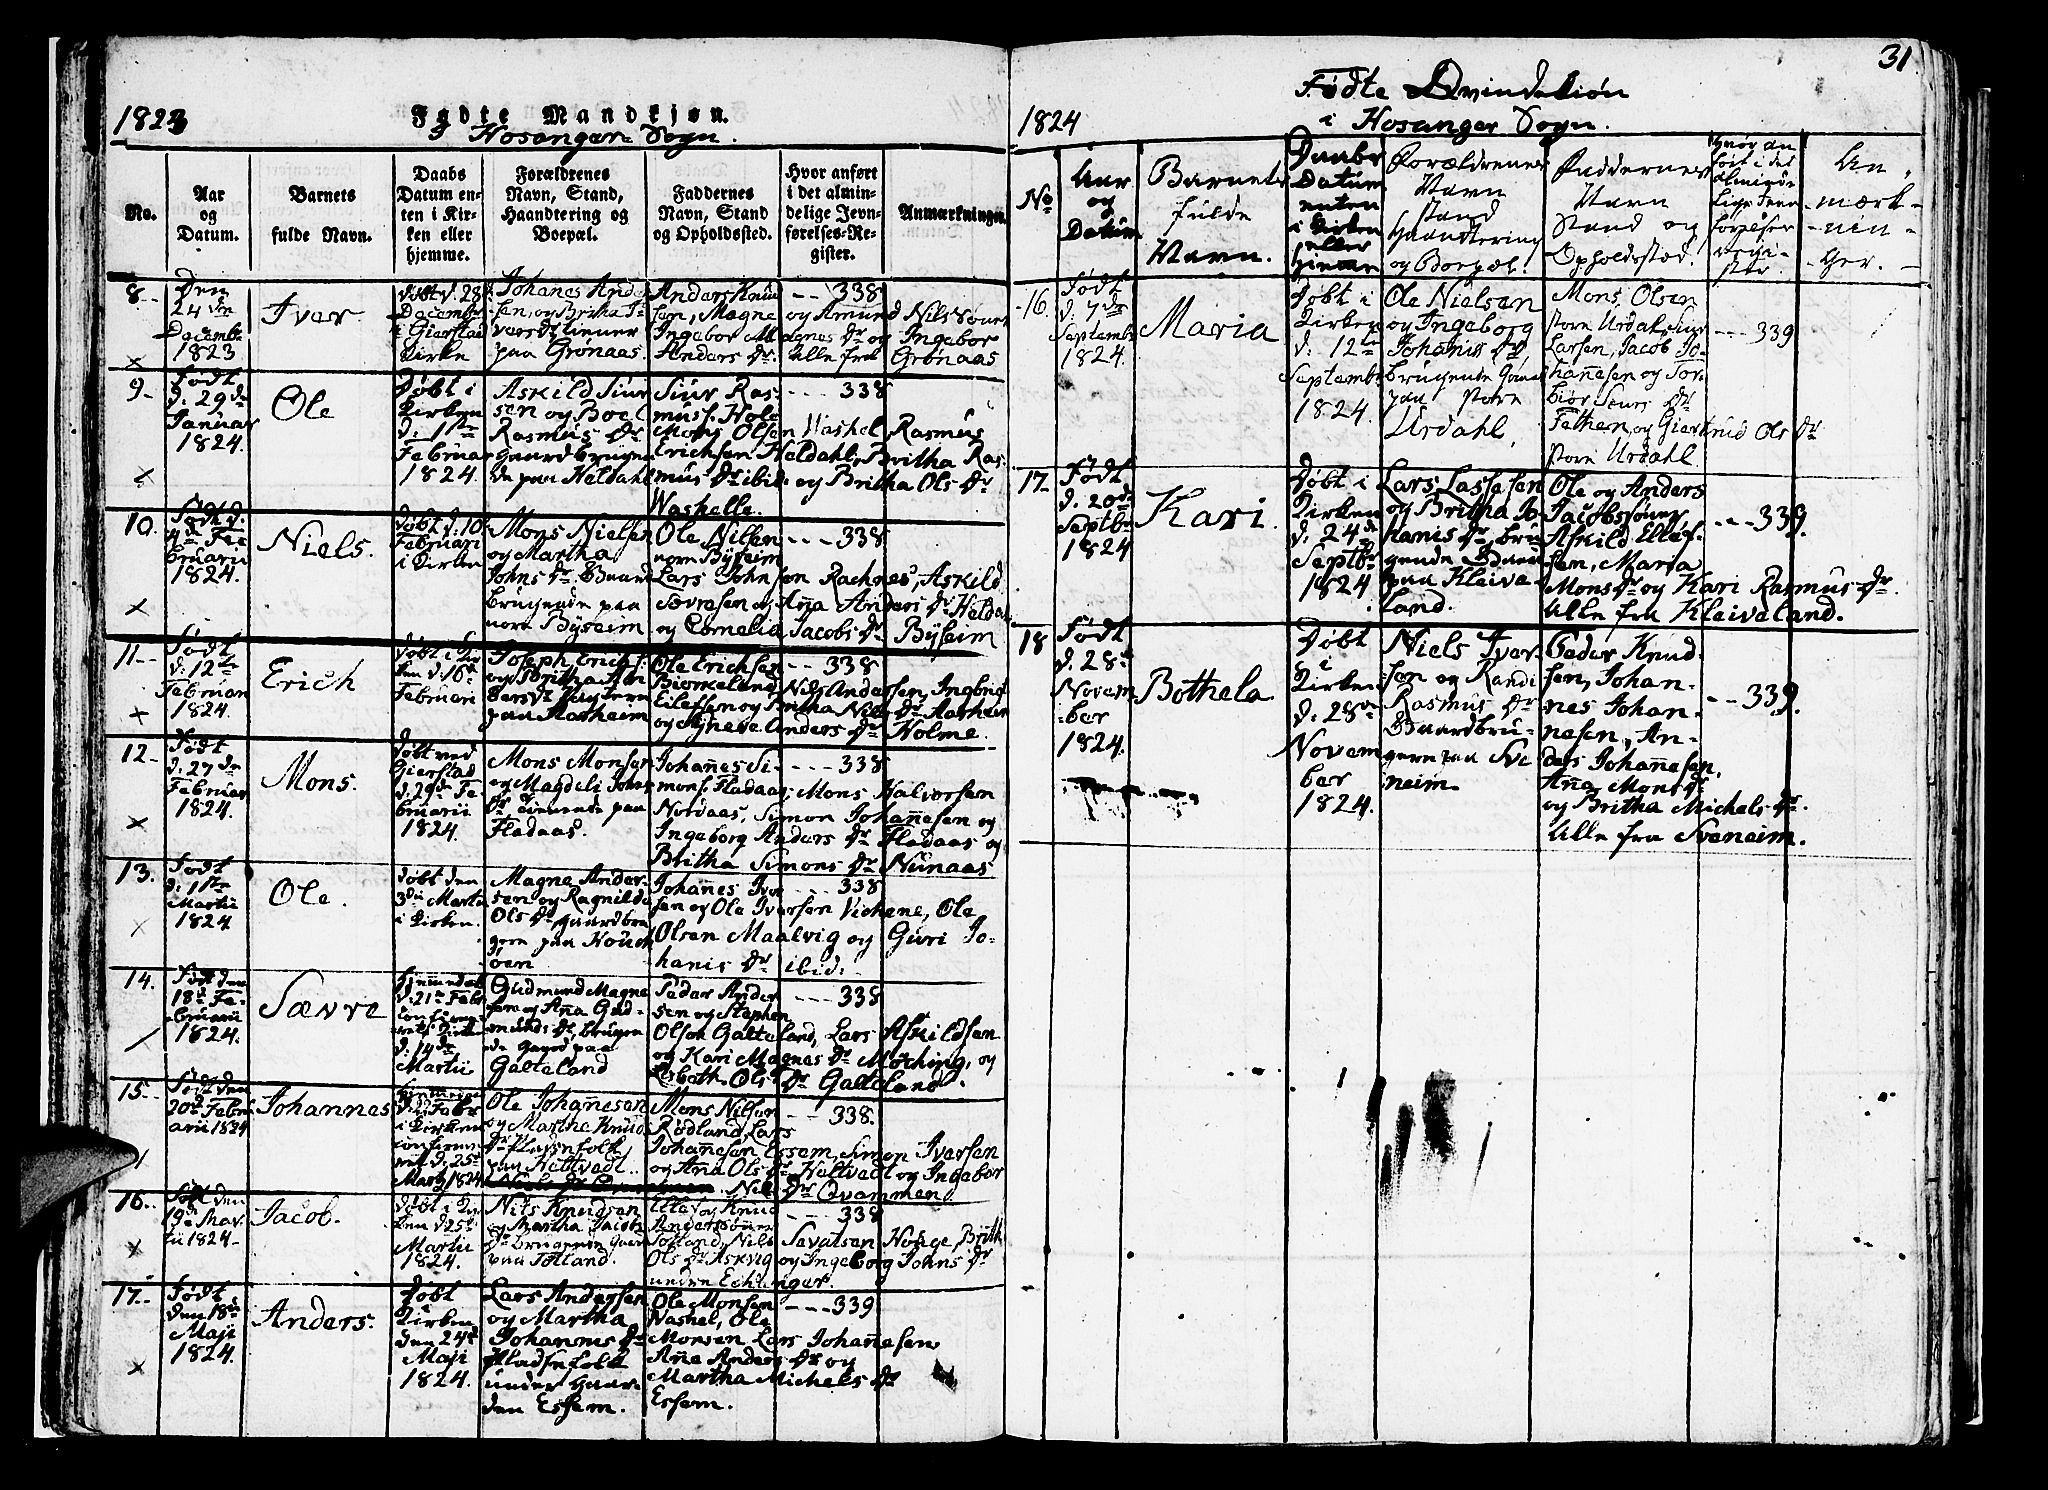 1823
Fødte Mandkjøn.
I Hosanger Sogn.
No.
Aar
og
Datum.
Barnets
fulde Navn.
Daabs
Datum en-
ten i Kir-
ken eller
hjemme.
Forældrenes
Navn, Stand,
Haandtering og
Boepæl.
Faddernes
Navn, Stand
og Opholdssted.
Hvor anført
i det almin-
delige Jevn-
førelses-Re-
gister.
Anmærkninger.
8
Den
24de
Decembr
1823
Iver.
Døbt d. 28
Decembr
i Gierstad
Kirke
Johanes Ander
sen, og Britha I-
versdr tienner
paa Grønaas
Anders Knud --- 338
sen, Magne og Amund Nilssøner
Ingebor Magnes dr og Ingebor
Anders dr. Alle fra Grønaas
9
Født
d. 29de
Januar
1824.
Ole
Døbt i
Kirken
d. 1ste
Februar
1824.
Askild Siur
sen og Boel
Rasmus dr
Gaardbrugen
de paa Heldahl
Siur Ras- --- 338
muss. Hole
Mons Olsen Washel, Rasmus
Erichsen Heldahl, Britha Ras
mus dr ibid: og Britha Ols dr
Washelle.
10.
Født d.
4de Fe
bruarii
1824.
Niels.
Døbt d. 10
Februari
i Kirken
Mons Nielsen
og Martha
Johns dr. Gaard
brugende paa
nore Bysheim
Ole Nilsen --- 338
nore Byseim
Lars Johnsen Rachnes, Askild
Sævresen og Aña Anders dr Heldal
og Cornelia Jacobs dr Byseim
11
Født
d. 12te
Februari
1824.
Erich
Døbt i Kir
ken d. 16de
Februari
Joseph Erichs.
og Britha An
ders dr
paa Aasheim
Ole Erichsen --- 338
Biørkeland, Nils Andersen, Ingebrigt
Eilefsen og Britha Nils dr Aasheim
og Agneve Anders dr Holme.
12
Født
d. 27de
Februar
1824.
Mons.
Døbt ved
Gierstad
d. 29de Fe
bruarii
1824.
Mons Monsen
og Magdeli Johns
dr tienende paa
Fladaas.
Johañes Si- --- 338
mons. Fladaas, Mons Halversen
Nordaas, Simon Johañesen og
Ingeborg Anders dr Fladaas og
Britha Simons dr Nunaas
13.
Født
d. 1ste
Martii
1824.
Ole.
Døbt den
3die Martii
i Kirken.
Magne Ander-
sen og Ragnilde
Ols dr. gaardbru
gere paa Houch
øen
Johanes Iver --- 338
sen og Ole Iversen Vichene, Ole
Olsen Maalvig og Guri Jo-
hanis dr ibid:
14.
Født den
18de Fe
bruarii
1824.
Sævre
Hjemmedøbt
d: 21de Febr
confirme-
ret i Kirken
d. 14de
Martii
Gudmund Magne
sen og Aña Gud-
munds dr, brugen
de Gaard paa
Galteland
Peder Ander --- 338
sen og Stephen
Olson Galteland, Lars Askildsen
og Kari Magnes dr Møching, og
Lisbeth Ols dr Galteland.
15.
Født den
20de Febru
arii 1824
Johannes
Ole Johañesen
og Martha Knud
dr Pladsefolk
paa Heltvedt.
Mons Nilsen --- 338.
Rødland, Lars
Johañesen Essem, Simon Iversen
og Ana Ols dr Heltvedt og Ingebor
Nils dr Qvammen
16.
Født den
19de Mar
tii 1824
Jacob.
Døbt i Kir
ken d 25de
Martii
1824.
Nils Knudsen
og Martha Jacobs
dr brugende Gaard
paa Totland.
Elle og Knud --- 338
Anderssøner
Totland, Nils Savalsen Houge, Brith
Ols dr Askvig og Ingeborg Johns dr
undre Echanger.
17.
Født
den 18de
Maji
1824.
Anders.
Døbt
i
Kirken
den 24de
Maji
1824.
Lars Andersen
og Martha
Johannes dr
Pladsefolk
under Gaar
den Essem.
Ole Monsen --- 339
Nashel, Ole
Monsen Lars Johañesen
Añe Anders dr og
Martha Michels dr
Essem.
31
Fødte Qvindekiøn
1824
i Hosanger Sogn.
No
Aar
og
Datum
Barnets
fulde
Navn.
Daabs
Datum
enten
i Kirken
eller
hjemme
Forældrenes
Navn
stand
Haandtering
og Boepæl.
Faddernes
Navn
Stand og
Opholdssted.
Hvor an
ført i det
almin-
lige Jevn
førelses
regi-
ster
An
mærk-
nin-
ger.
16.
Født
d. 7de
Septembr
1824.
Maria
Døbt i
Kirken
d. 12te
Septembr
1824.
Ole Nielsen
og Ingeborg
Johanis dr,
brugende Gaard
paa store
Urdahl.
Mons Olsen
store Urdal, Siur
Larsen, Jacob Jo- --- 339
hañesen og Tor-
biør Siurs dr
Fethen, og Giertrud Ols dr
store Urdahl.
17.
Født
d. 20de
Septbr
1824
Kari
Døbt i
Kirken
d. 24de
Septbr
1824
Lars Lassesen
og Britha Jo
hanis dr, bru
gende Gaard
paa Kleive-
land.
Ole og Anders
Jacobssøner --- 339.
Askild Ellef-
sen, Maria
Mons dr og Kari Rasmus dr.
Alle fra Kleiveland.
18
Født
d. 28de
Novem
ber
1824.
Bothela
Døbt
i
Kirken
d. 28de
Novem
ber
1824.
Niels Iver
sen og Randi
Rasmus dr
Gaardbru-
gere paa Sve
neim.
Peder Knud
sen, Johan-
nes Johan- --- 339.
nesen, An-
ders Johañesen,
Aña Mons dr
og Britha Michels dr.
Alle fra Sveneim.